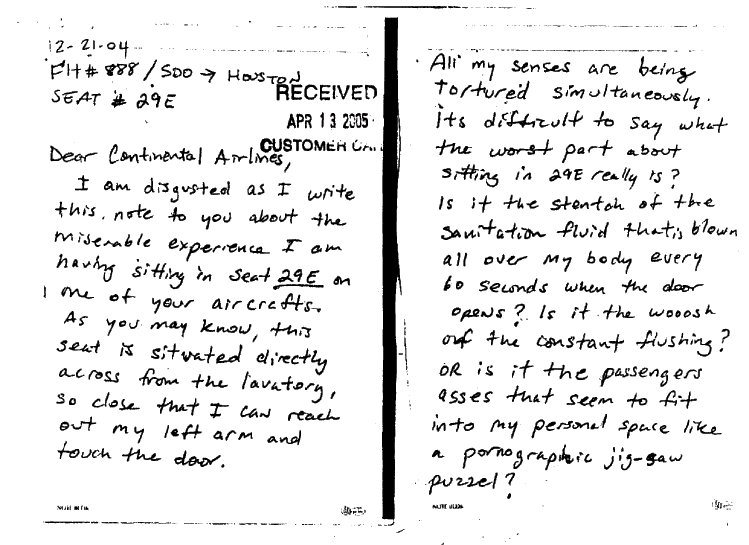 12-21-04
Flt# 888 / SDO → HOUSTON
SEAT # 29E
RECEIVED
APR 13 2005
CUSTOMER
Dear Continental Airlines,
I am disgusted as I write
this note to you about the
miserable experience I am
having sitting in seat 29E on
one of your aircrafts.
As you may know, this
seat is situated directly
across from the lavatory,
so close that I can reach
out my left arm and
touch the door.
All my senses are being
tortured simultaneously.
its difficult to say what
the worst part about
sitting in 29E really is?
Is it the stentch of the
sanitation fluid that is blown
all over my body every
60 seconds when the door
opens? Is it the wooosh
of the constant flushing?
OR is it the passengers
asses that seem to fit
into my personal space like
a pornographic jig-saw
puzzel?